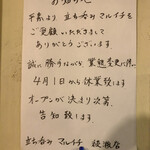 お知らせ
平素より 立ち呑み マルイチを
ご愛顧いただきまして
ありがとうございます
誠に勝手ながら 業態変更に伴い
4月1日から休業致します
オープンが決まり次第
告知致します
立ち呑み マルイチ 綾瀬店